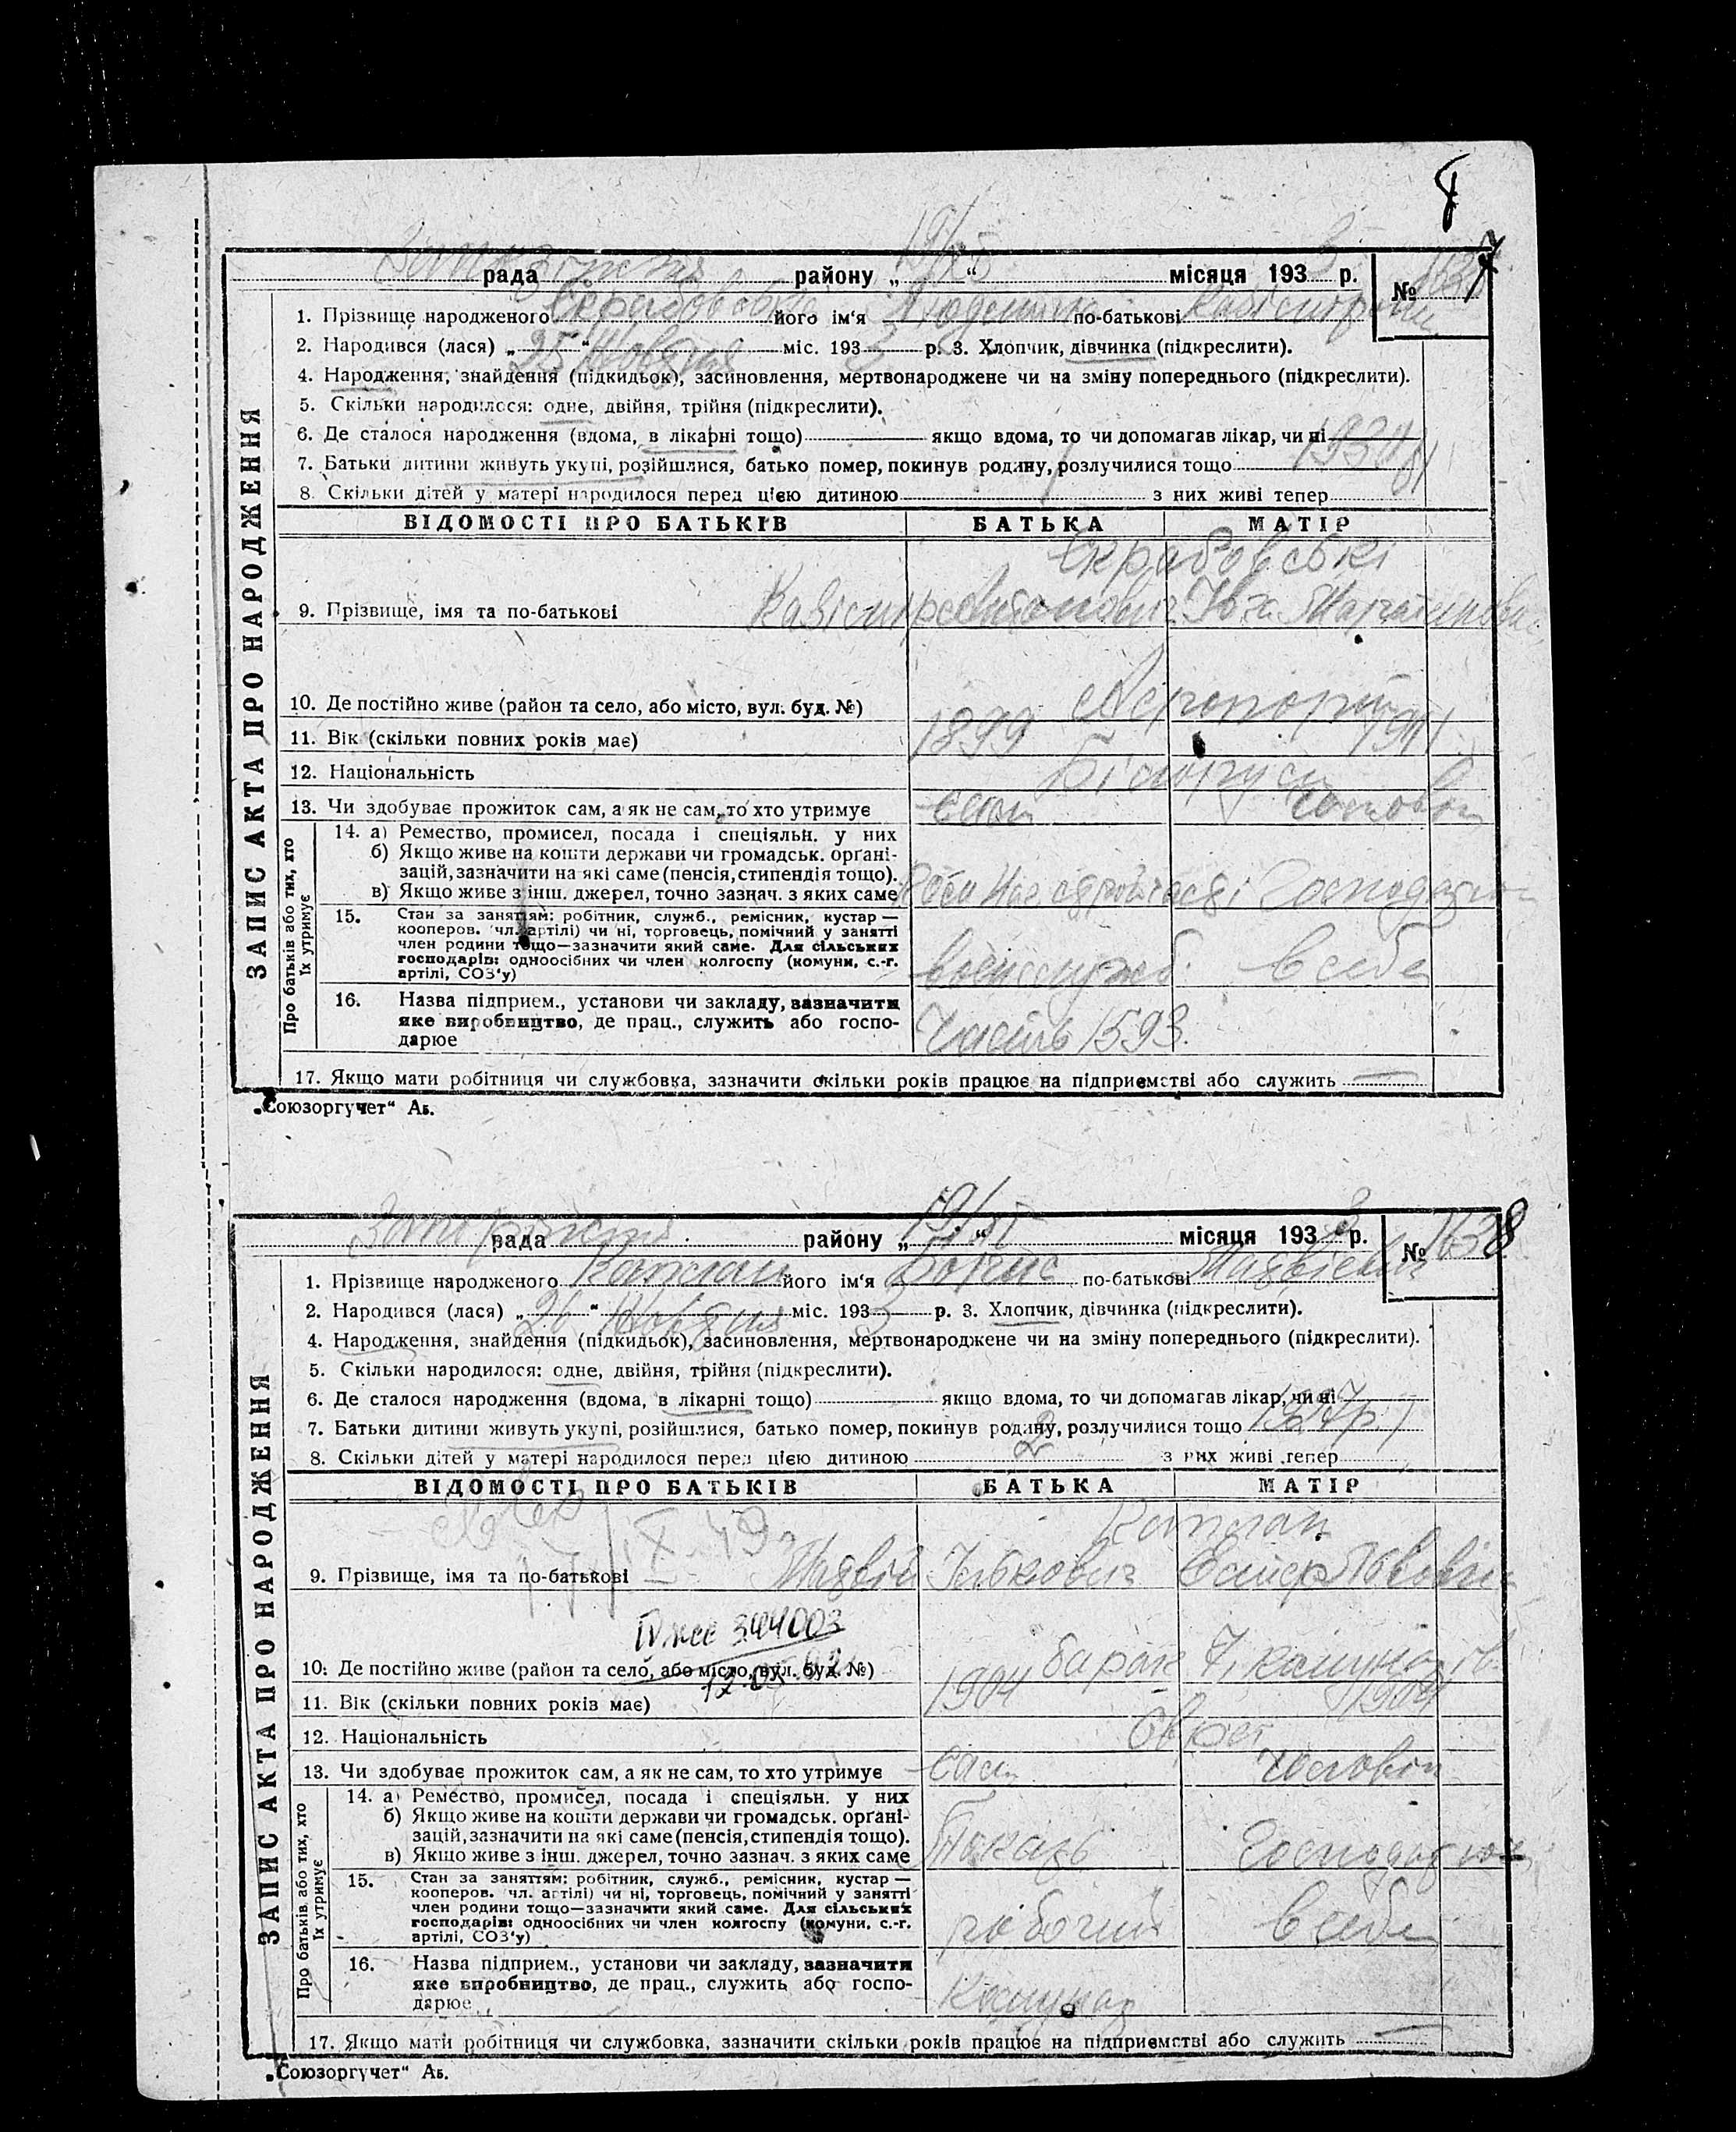 рада району „19/XI“ місяця 1933 р. №
1. Прізвище народженого його ім'я по-батькові
2. Народився (лася) „25“ Жовтня міс. 1933 р. 3. Хлопчик, дівчинка (підкреслити).
4. Народження, знайдення (підкидьок), засиновлення, мертвонароджене чи на зміну попереднього (підкреслити).
5. Скільки народилося: одне, двійня, трійня (підкреслити).
6. Де сталося народження (вдома, в лікарні тощо) якщо вдома, то чи допомагав лікар, чи ні
7. Батьки дитини живуть укупі, розійшлися, батько помер, покинув родину, розлучилися тощо
8. Скільки дітей у матері народилося перед цією дитиною з них живі тепер
ВІДОМОСТІ ПРО БАТЬКІВ БАТЬКА МАТІР
9. Прізвище, імя та по-батькові
10. Де постійно живе (район та село, або місто, вул. буд. №)
11. Вік (скільки повних років має) 1899 1911
12. Національність
13. Чи здобуває прожиток сам, а як не сам, то хто утримує сам чоловік
14. а) Ремество, промисел, посада і спеціяльн. у них
б) Якщо живе на кошти держави чи громадськ. орґані-
зацій, зазначити на які саме (пенсія, стипендія тощо).
в) Якщо живе з інш. джерел, точно зазнач. з яких саме
15. Стан за заняттям: робітник, служб., ремісник, кустар —
кооперов. чл. артілі) чи ні, торговець, помічний у занятті
член родини тощо—зазначити який саме. Для сільських
господарів: одноосібних чи член колгоспу (комуни, с.-г.
артілі, СОЗ'у)
військслужб. в себе
16. Назва підприєм., установи чи закладу, зазначити
яке виробництво, де прац., служить або госпо-
дарює
Часть 1593
17. Якщо мати робітниця чи службовка, зазначити скільки років працює на підприємстві або служить —
ЗАПИС АКТА ПРО НАРОДЖЕННЯ
Про батьків або тих, хто
їх утримує
„Союзоргучет“ Аб.
рада району „19/XI“ місяця 1933 р. № 1638
1. Прізвище народженого Каплан його ім'я Борис по-батькові
2. Народився (лася) „26“ Жовтня міс. 1933 р. 3. Хлопчик, дівчинка (підкреслити).
4. Народження, знайдення (підкидьок), засиновлення, мертвонароджене чи на зміну попереднього (підкреслити).
5. Скільки народилося: одне, двійня, трійня (підкреслити).
6. Де сталося народження (вдома, в лікарні тощо) якщо вдома, то чи допомагав лікар, чи ні
7. Батьки дитини живуть укупі, розійшлися, батько помер, покинув родину, розлучилися тощо
8. Скільки дітей у матері народилося перед цією дитиною 2 з них живі тепер
ВІДОМОСТІ ПРО БАТЬКІВ БАТЬКА МАТІР
Каплан
9. Прізвище, імя та по-батькові
344003
10. Де постійно живе (район та село, або місто, вул. буд. №) барак 7
11. Вік (скільки повних років має) 1904 1904
12. Національність Євреї
13. Чи здобуває прожиток сам, а як не сам, то хто утримує сам чоловік
14. а) Ремество, промисел, посада і спеціяльн. у них
б) Якщо живе на кошти держави чи громадськ. орґані-
зацій, зазначити на які саме (пенсія, стипендія тощо).
в) Якщо живе з інш. джерел, точно зазнач. з яких саме
Токарь
15. Стан за заняттям: робітник, служб., ремісник, кустар —
кооперов. чл. артілі) чи ні, торговець, помічний у занятті
член родини тощо—зазначити який саме. Для сільських
господарів: одноосібних чи член колгоспу (комуни, с.-г.
артілі, СОЗ'у)
робочий в себе
16. Назва підприєм., установи чи закладу, зазначити
яке виробництво, де прац., служить або госпо-
дарює
Комунар
17. Якщо мати робітниця чи службовка, зазначити скільки років працює на підприємстві або служить —
ЗАПИС АКТА ПРО НАРОДЖЕННЯ
Про батьків або тих, хто
їх утримує
„Союзоргучет“ Аб.